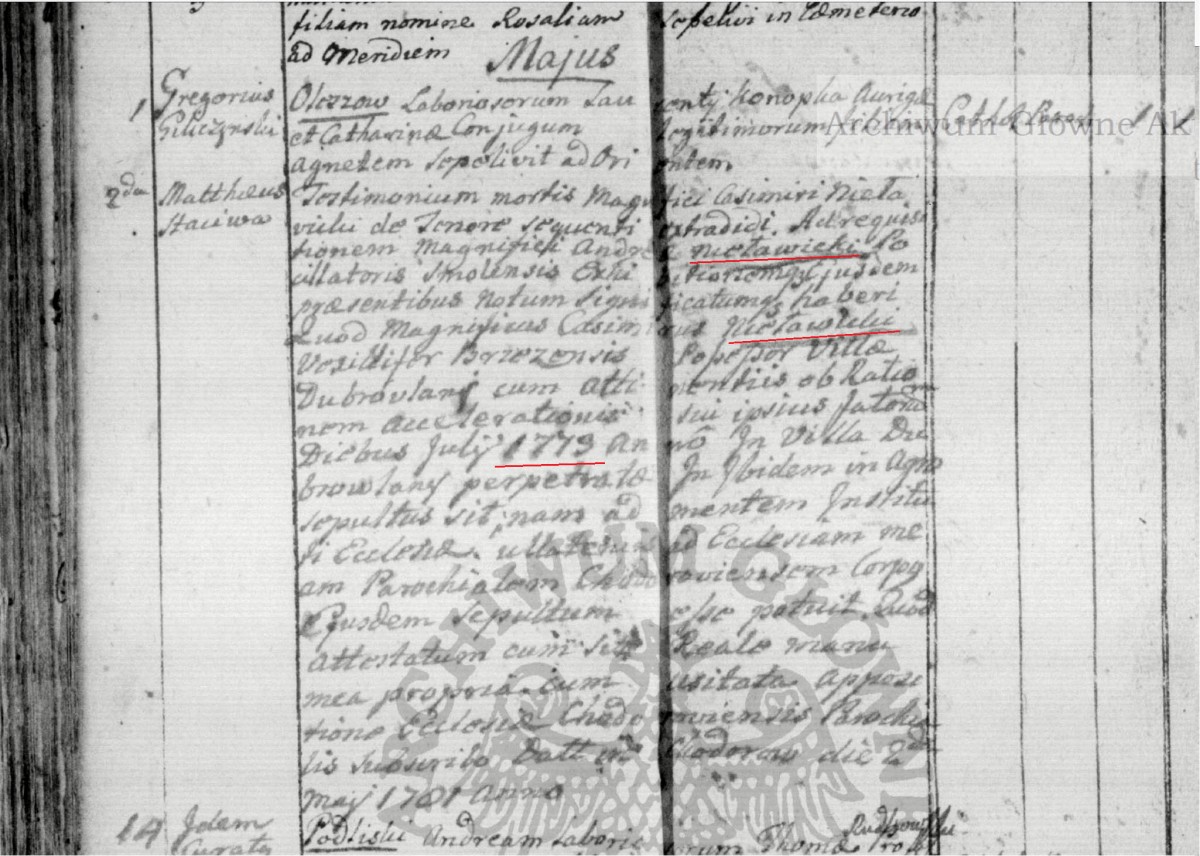 filiam nomine Rosaliam sepelivi in Cæmeterio
ad Meridiem
Majus
1 Gregorius Oleszow Laboriosorum Lau rentÿ Konopka Aurigæ
et Catharinæ Conjugum legitimorum
Agnetem sepelivit ad Ori entem
2da Matthæus Testimonium mortis Mag fici Casimiri Nieła
viciki de Tenore sequenti extradidi. Ad requisi
tionem Magnifici Andre Niesławicki Po
cillatoris
præsentibus Notum Signi ficatumq haberi
Quod Magnificus Casim irus
Vexillifer Brzezensis Possessor Villæ
Dubrovlany cum atti nentiis ob Ratio
nem accelerationis sui ipsius
Diebus Julÿ 1773 An no In Villa Du
brovlany perpetratæ In Ibidem in Agro
sepultus sit, nam ad mentem Institu
ti Ecclesiæ ullatenus ad Ecclesiam me
am Parochialem Chodo roviensem Corpg
Ejusdem Sepultum esse potuit. Quod
Attestatum cum sit Reale manu
mea propria cum usitata Apposi
tione Ecclesiæ Chodo roviensis Parochia
lis subscribo Datt in Chodorow die 2da
Maÿ 1781 Anno
14 Idem Podliski Andream Laborio sorum Thomæ
Curatg
Archiwum Główne Ak
ARCHIWUM GŁÓWN